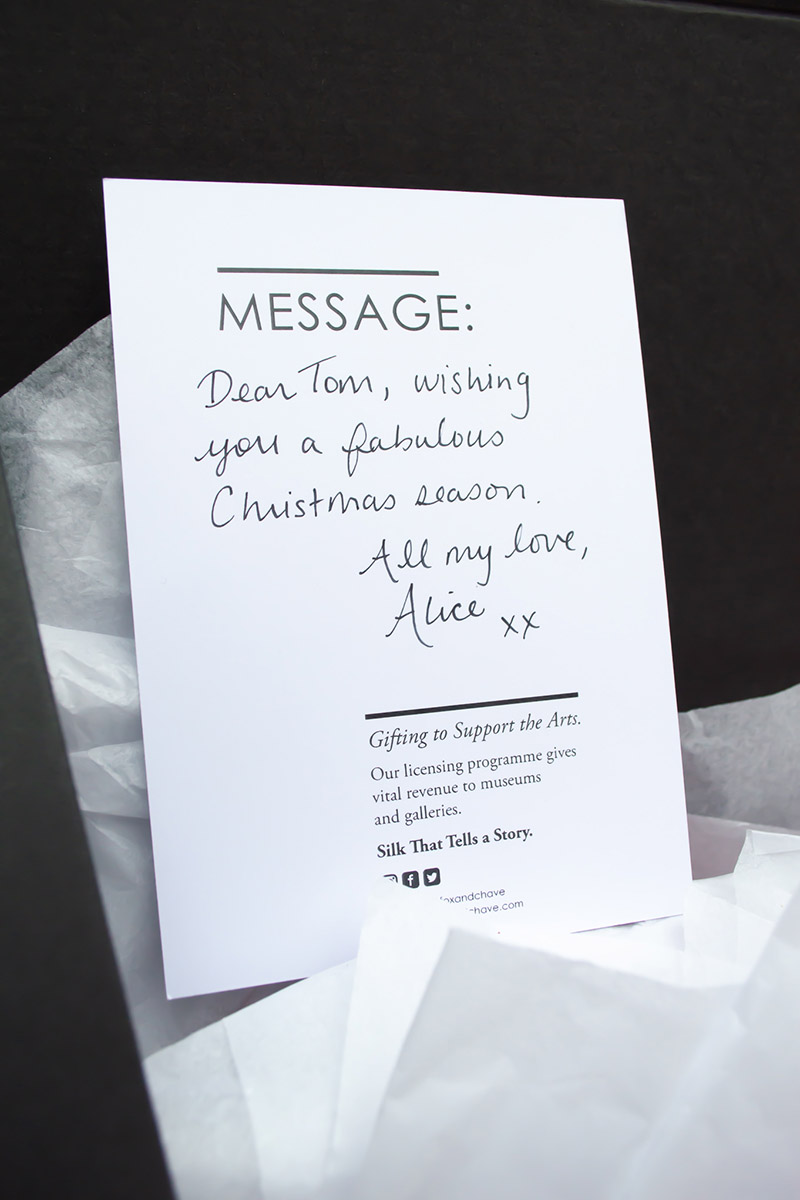 MESSAGE:
Dear Tom, wishing
you a fabulous
Christmas season.
All my love,
Alice xx
Gifting to Support the Arts.
Our licensing programme gives
vital revenue to museums
and galleries.
Silk That Tells a Story.